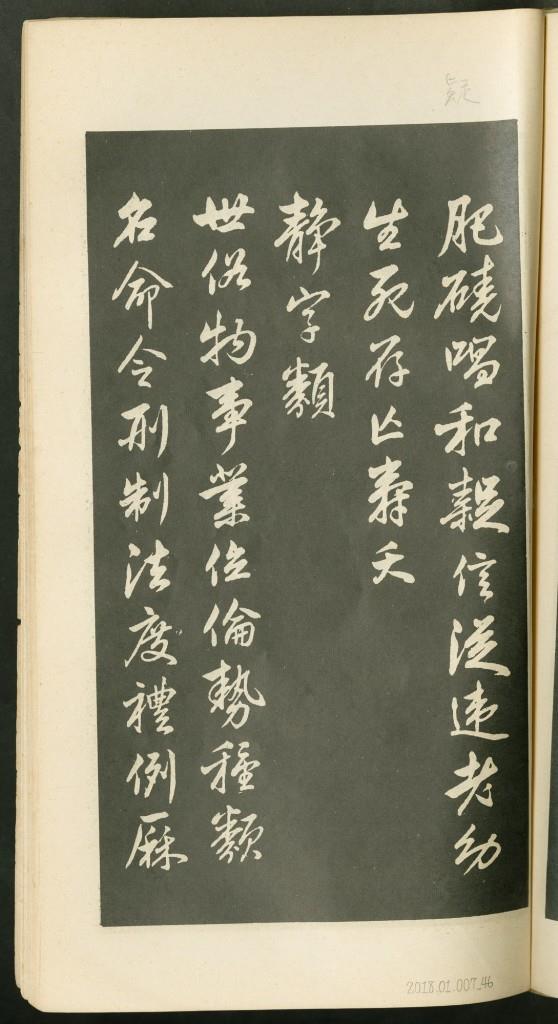 疑
肥磽唱和疑信從違老幼
生死存亡壽夭
靜字類
世俗物事業位倫勢種類
名命令刑制法度禮例厤
2018.01.007_46